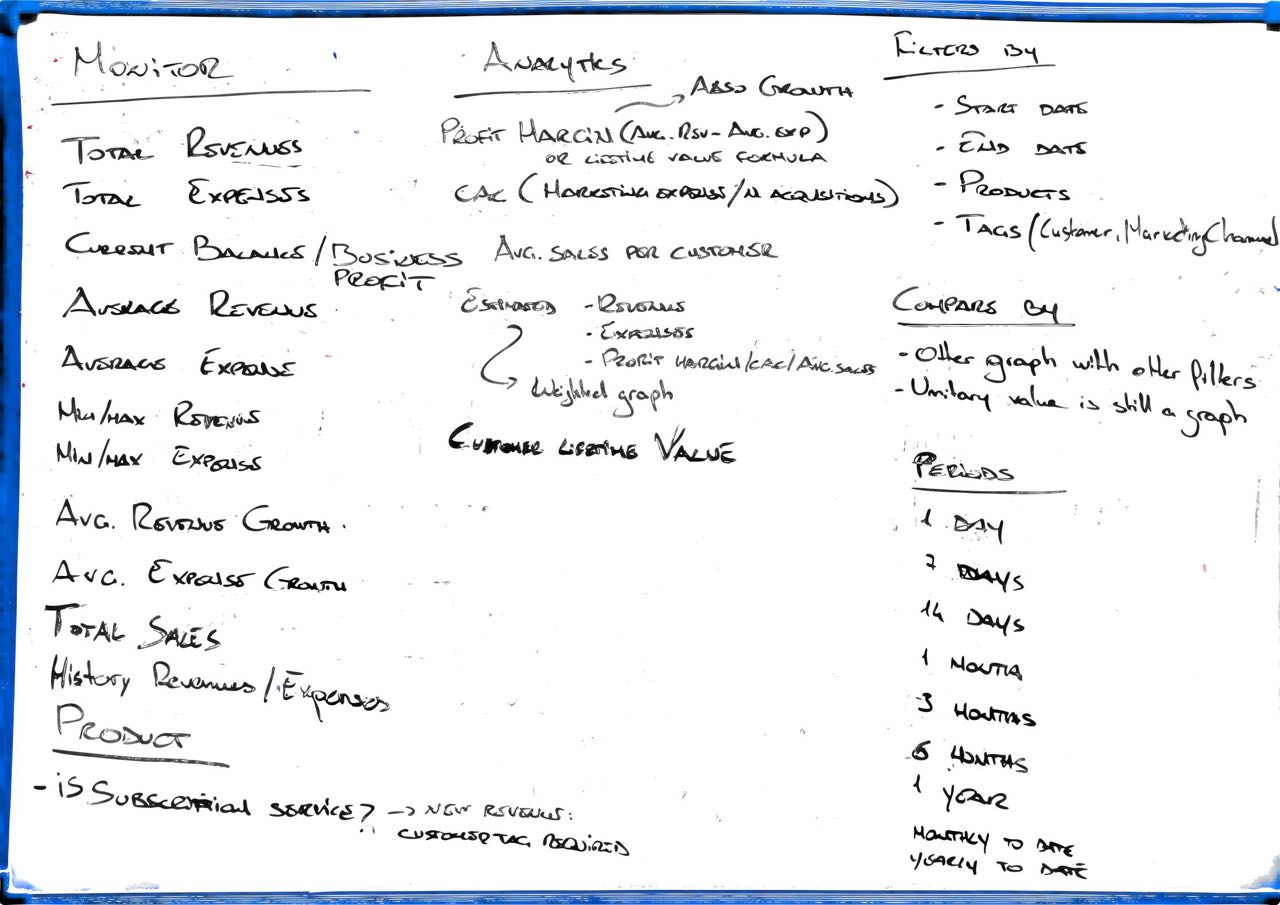 MONITOR
TOTAL REVENUES
TOTAL EXPENSES
CURRENT BALANCE/BUSINESS
PROFIT
AVERAGE REVENUE
AVERAGE EXPENSE
MIN/MAX REVENUE
MIN/MAX EXPENSE
AVG. REVENUE GROWTH.
AVG. EXPENSE GROWTH
TOTAL SALES
History Revenues/Expenses
PRODUCT
- is SUBSCRIPTION SERVICE? -> NEW REVENUE:
CUSTOMER TAG REQUIRED
ANALYTICS
ALSO GROWTH
PROFIT MARGIN (AVG. REV - AVG. EXP)
OR LIFETIME VALUE FORMULA
CAC (MARKETING EXPENSE/N ACQUISITIONS)
AVG. SALES PER CUSTOMER
ESTIMATED - REVENUE
- EXPENSES
- PROFIT MARGIN/CAC/AVG. SALES
Weighted graph
CUSTOMER LIFETIME VALUE
FILTERS BY
- START DATE
- END DATE
- PRODUCTS
- TAGS (Customer, Marketing Channel
COMPARE BY
- Other graph with other filters
- Unitary value is still a graph
PERIODS
1 DAY
7 DAYS
14 DAYS
1 MONTH
3 MONTHS
6 MONTHS
1 YEAR
MONTHLY TO DATE
YEARLY TO DATE